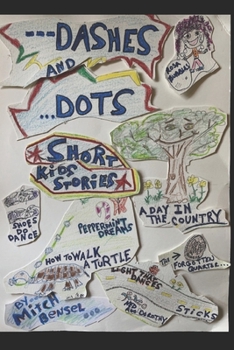 ---DASHES
AND
...DOTS
SHORT
KIDS
STORIES
SHOES
DO
DANCE
PEPPERMINT
DREAMS
A DAY IN
THE COUNTRY!
HOW TO WALK
A TURTLE
LIGHT THAT
DANCES
THE
FORGOTTEN
QUARTER...
BY...
MITCH
BENSEL...
AND
DOROTHY
STICKS